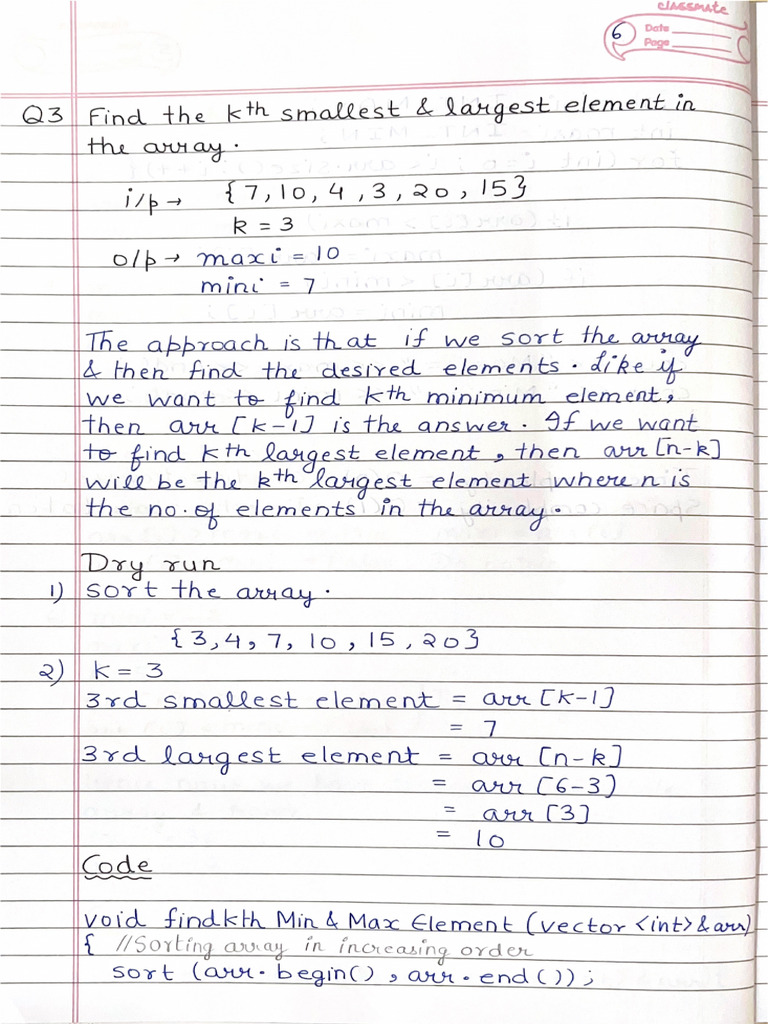 classmate
Date
Page
6
Q3 Find the kth smallest & largest element in
the array.
i/p → {7, 10, 4, 3, 20, 15}
k = 3
o/p → maxi = 10
mini = 7
The approach is that if we sort the array
& then find the desired elements. Like if
we want to find kth minimum element,
then arr [k-1] is the answer. If we want
to find kth largest element, then arr [n-k]
will be the kth largest element where n is
the no. of elements in the array.
Dry run
1) sort the array.
{3, 4, 7, 10, 15, 20}
2) k = 3
3rd smallest element = arr [k-1]
= 7
3rd largest element = arr [n-k]
= arr [6-3)
= arr [3]
= 10
Code
void findkth Min & Max Element (vector <int> & arr)
{ //Sorting array in increasing order
sort (arr.begin(), arr.end());